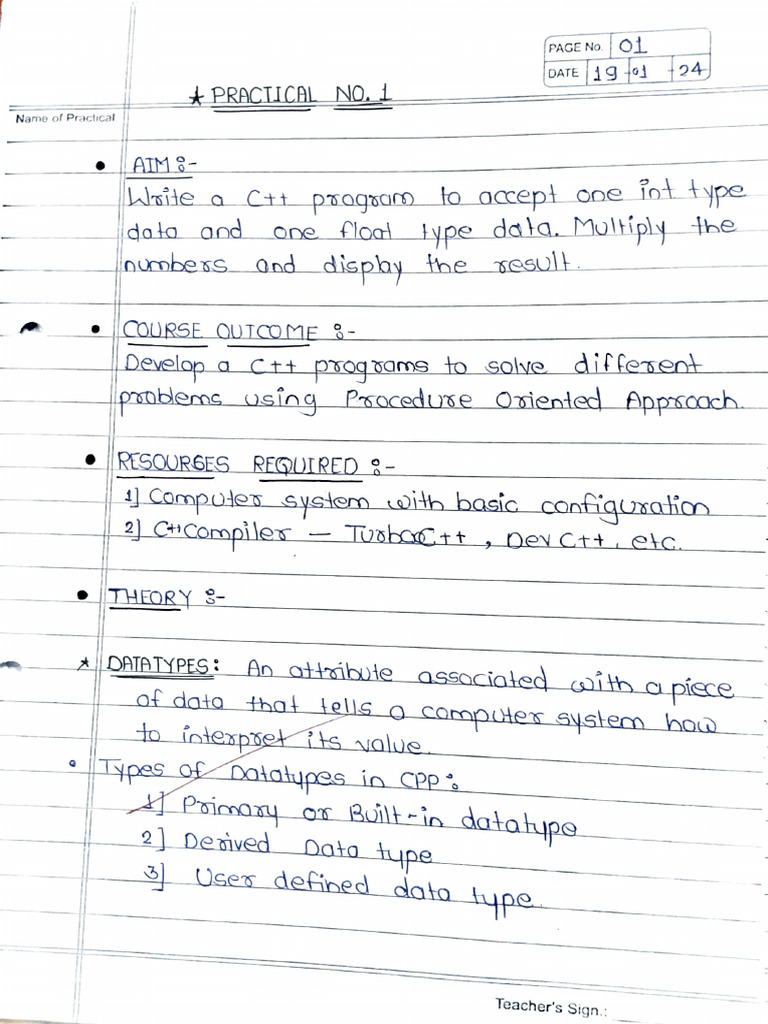 PAGE No. 01
DATE 19 01 24
★ PRACTICAL NO. 1
Name of Practical
• AIM :-
Write a C++ program to accept one int type
data and one float type data. Multiply the
numbers and display the result.
• COURSE OUTCOME :-
Develop a C++ programs to solve different
problems using Procedure Oriented Approach.
• RESOURSES REQUIRED :-
1] Computer system with basic configuration
2] C++ Compiler — Turbo C++, Dev C++, etc.
• THEORY :-
★ DATATYPES: An attribute associated with a piece
of data that tells a computer system how
to interpret its value.
• Types of Datatypes in CPP:
1] Primary or Built-in datatype
2] Derived Data type
3] User defined data type.
Teacher's Sign.: